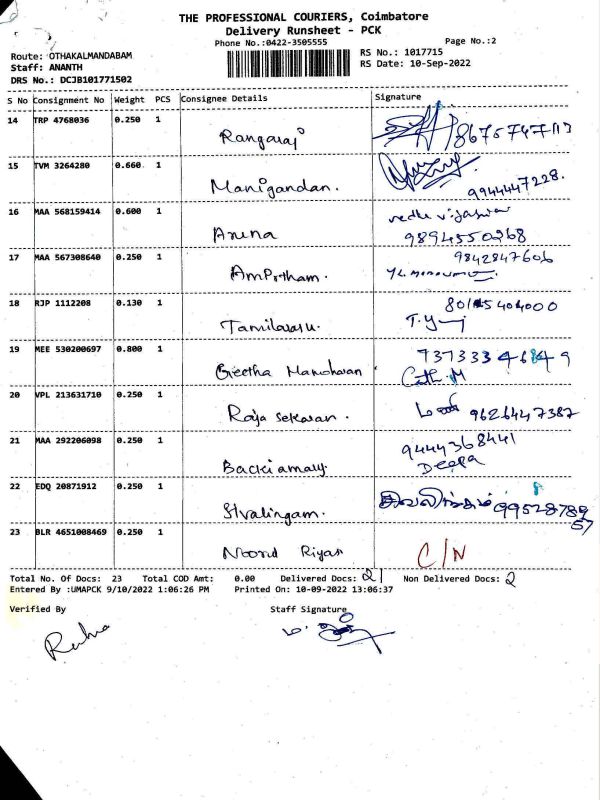 THE PROFESSIONAL COURIERS, Coimbatore
Delivery Runsheet - PCK
Phone No.:0422-3505555
Page No.:2
Route: OTHAKALMANDABAM
RS No.: 1017715
Staff: ANANTH
RS Date: 10-Sep-2022
DRS No.: DCJB101771502
S No Consignment No Weight PCS Consignee Details Signature
14 TRP 4768036 0.250 1
Rangaraj
15 TVM 3264280 0.660 1
Manigandan. 9944447228.
16 MAA 568159414 0.600 1
Aruna 9894550268
17 MAA 567308640 0.250 1 9842847606
18 RJP 1112208 0.130 1
Tamilarasu.
19 MEE 530200697 0.800 1
Geetha Manoharan
20 VPL 213631710 0.250 1
Raja sekaran. 9626447387
21 MAA 292206098 0.250 1 9444368441
Deepa
22 EDQ 20871912 0.250 1
Sivalingam. சிவலிங்கம் 99528789
57
23 BLR 4651008469 0.250 1
Riyas C/N
Total No. Of Docs: 23 Total COD Amt: 0.00 Delivered Docs: 21 Non Delivered Docs: 2
Entered By :UMAPCK 9/10/2022 1:06:26 PM Printed On: 10-09-2022 13:06:37
Verified By Staff Signature